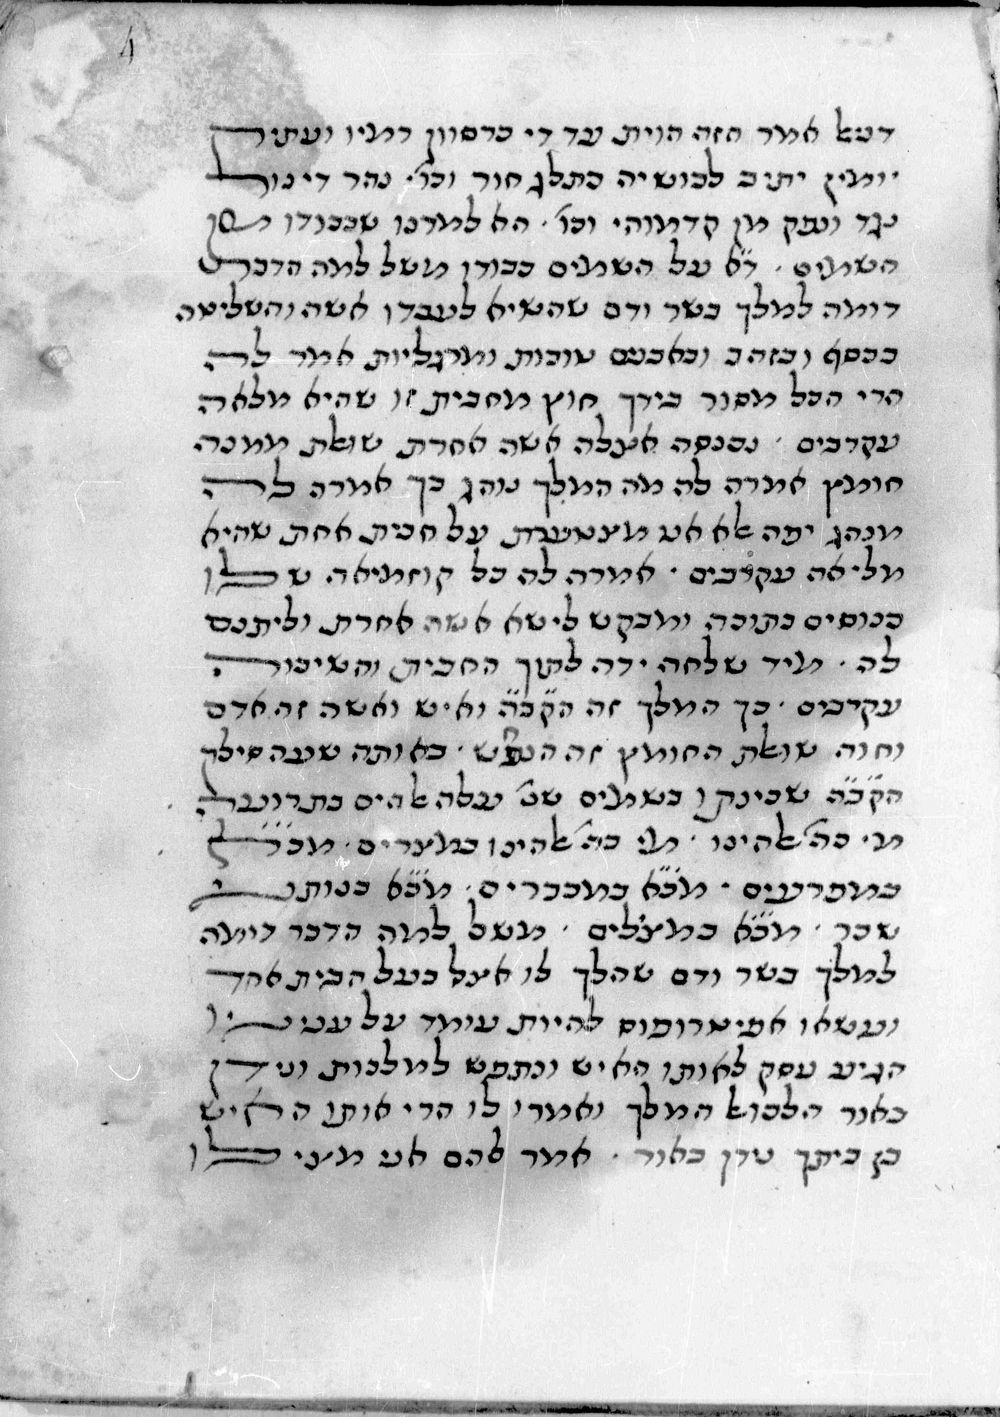 דניאל אמר חזה הוית עד די כרסוון רמיו ועתיק
יומין יתיב לבושיה כתלג חור וכו׳ נהר דינור
נגד ונפק מן קדמוהי וכו׳ הא למדנו שכבודו מן
השמים · ד״א על השמים כבודו משל למה הדבר
דומה למלך בשר ודם שהשיא לעבדו אשה והשליטה
בכסף ובזהב ובאבנים טובות ומרגליות אמר לה
הרי הכל מסור בידך חוץ מחבית זו שהיא מלאה
עקרבים · נכנסה אצלה אשה אחרת שואלת ממנה
חומץ אמרה לה מה המלך נוהג בך אמרה לה
מנהג יפה אלא אני מצטערת על חבית אחת שהיא
מליאה עקרבים · אמרה לה כל קוזמיאה שלו
כנוסים בתוכה ומבקש לישא אשה אחרת וליתנם
לה · מיד שלחה ידה לתוך החבית והשיכוה
עקרבים · כך המלך זה הק״ב״ה ואיש ואשה זה אדם
וחוה שואלת החומץ זה הנחש · באותה שעה סילק
הק״ב״ה שכינתו בשמים שנ׳ עלה אלהים בתרועה
מי כה׳ אלהינו · מי כה׳ אלהינו במצרים · מכ״ל
במפרעים · מכ״א במכברים · מכ״א בנותני
שכר · מכ״א במצלים · משל למה הדבר דומה
למלך בשר ודם שהלך לו אצל בעל הבית אחד
ועשאו אפיטרופוס להיות עומד על ענייניו
הגיע עסק לאותו האיש ונתפש למלכות ונידון
באור הלכו אל המלך ואמרו לו הרי אותו האיש
בן ביתך נידון באור · אמר להם אני מציילו